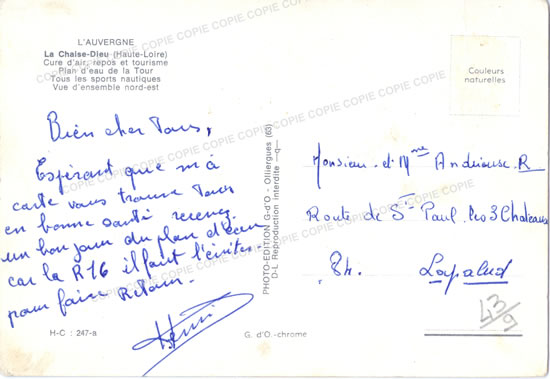 L'AUVERGNE
La Chaise-Dieu (Haute-Loire)
Cure d'air, repos et tourisme
Plan d'eau de la Tour
Tous les sports nautiques
Vue d'ensemble nord-est
Bien cher Tous,
Espérant que ma
carte vous trouve Tous
en bonne santé recevez
un bonjour du plan d'eau
car la R16 il faut l'éviter
pour faire Retour.
H-C : 247-a
PHOTO-EDITION G-d'O - Olliergues (63)
D-L Reproduction interdite - 9
G. d'O.-chrome
Couleurs
naturelles
Monsieur et Mme Andrieuse. R
Route de St Paul. les 3 Chateaux
84. Lapalud
43/9
COPIE COPIE COPIE COPIE COPIE COPIE